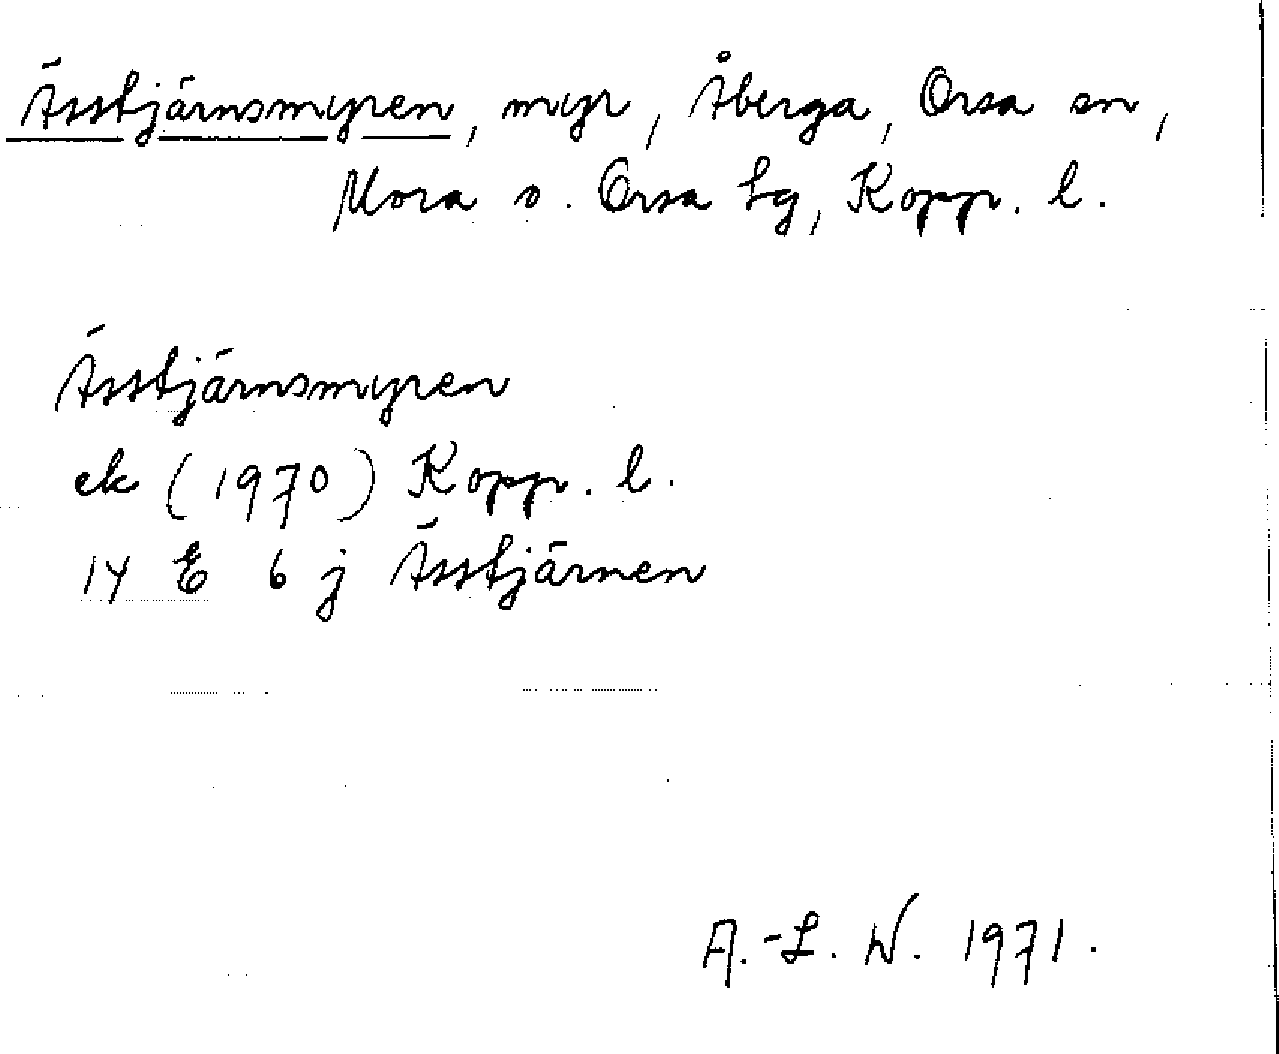 Ässtjärnsmyren, myr, Åberga, Orsa sn,
Mora o. Orsa tg, Kopp. l.
Ässtjärnsmyren
ek (1970) Kopp. l.
14 E 6 j Ässtjärnen
A.-L. W. 1971.